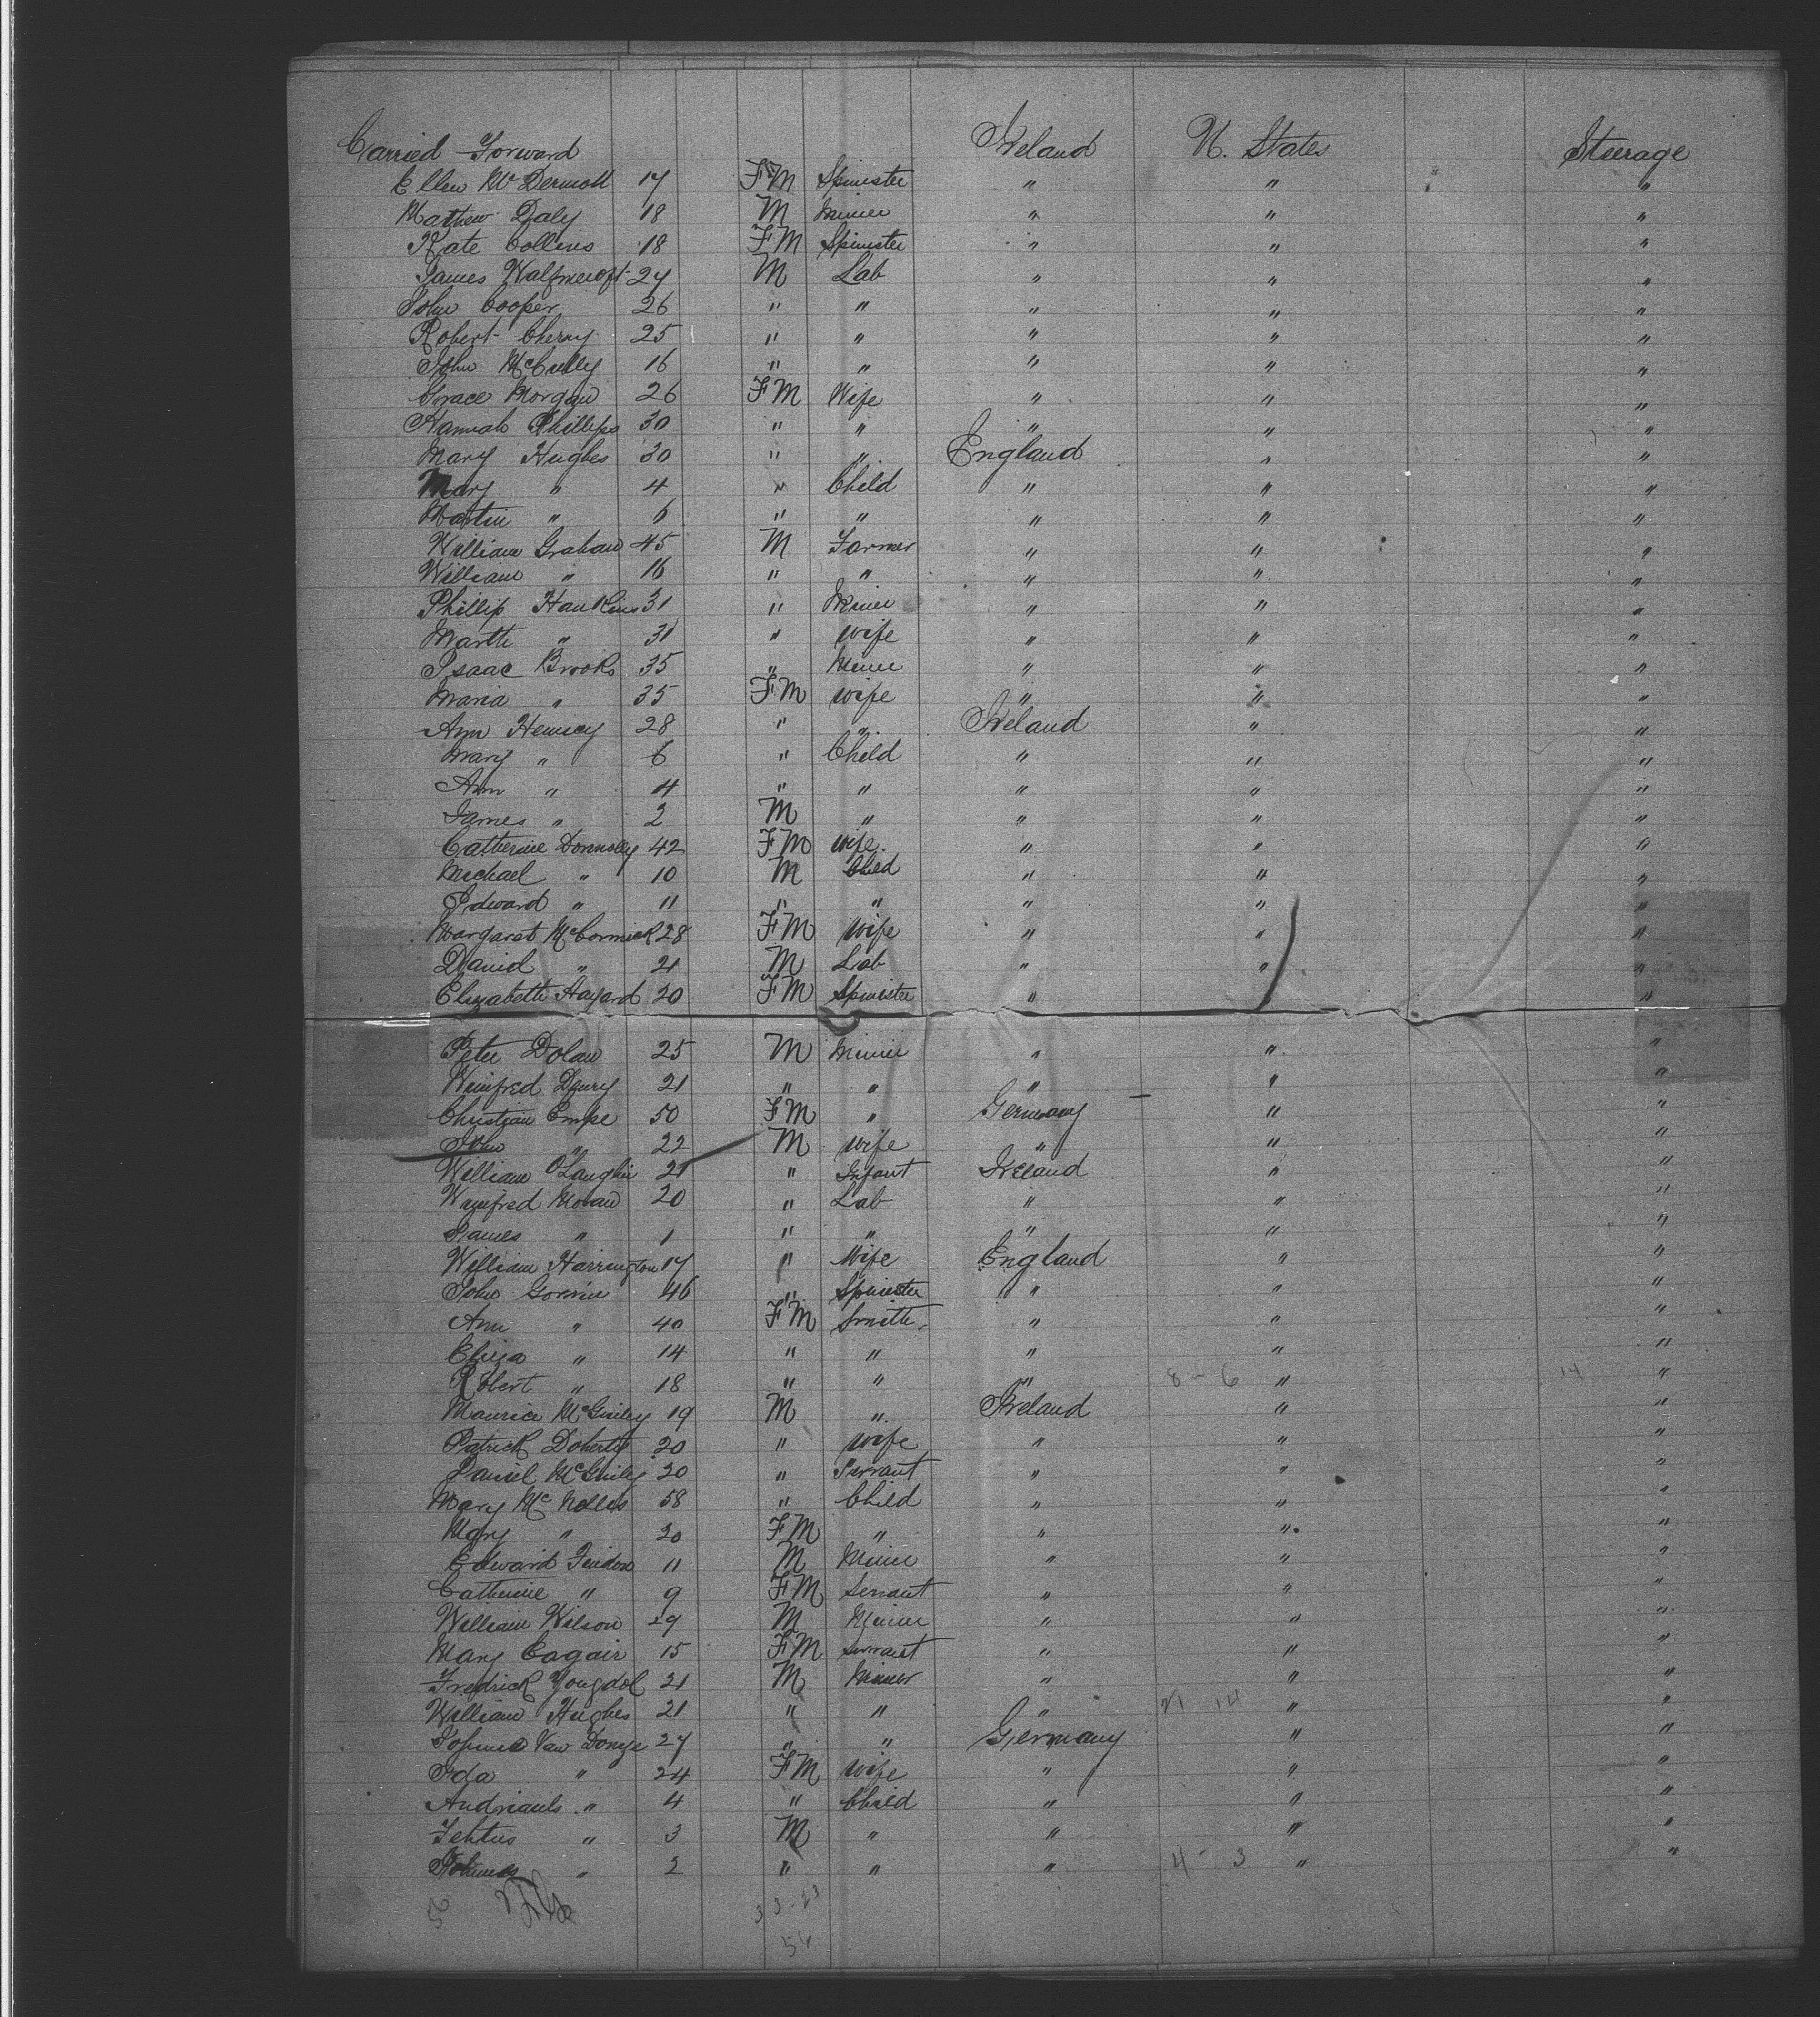 Carried Forward Ireland U. States Steerage
Ellen McDermott 17 FM Spinster " " "
Mathew Daly 18 M Miner " " "
Kate Collins 18 FM Spinster " " "
James 27 M Lab " " "
John Cooper 26 " " " " "
Robert Cherry 25 " " " " "
John McCully 16 " " " " "
Grace Morgan 26 FM Wife " " "
Hannah Phillips 30 " " " " "
Mary Hughes 30 " " England " "
Mary " 4 " Child " " "
Martin " 6 " " " " "
William Graham 45 M Farmer " " "
William " 16 " " " " "
Phillip Hankins 31 " Miner " " "
Marth " 31 " wife " " "
Isaac Brooks 35 " Miner " " "
Maria " 35 FM wife " " "
Ann 28 " " Ireland " "
Mary " 6 " Child " " "
Ann " 4 " " " " "
James " 2 M " " " "
Catherine Donnolly 42 FM wife. " " "
Michael " 10 M Child " " "
Edward " 11 " " " " "
Margaret McCormick 28 FM Wife " " "
David " 21 M Lab " " "
Elizabeth Hayard 20 FM Spinster " "
Peter Dolan 25 M Miner " " "
Winifred Deury 21 " " " " "
Christian Empe 50 FM " Germany " "
John " 22 M wife " " "
William O'Laughlin 21 " Infant Ireland " "
Winifred Moran 20 " Lab " " "
James " 1 " " " " "
William Harrington 17 " Wife England " "
John Gorwin 46 " Spinster " " "
Ann " 40 FM Smith. " " "
Eliza " 14 " " " " "
Robert " 18 " " " 8 - 6 " 14 "
Maurice McGinley 19 M " Ireland " "
Patrick Doherty 20 " wife " " "
Daniel McGinley 20 " Servant " " "
Mary McNellis 58 " Child " " "
Mary " 20 FM " " " "
Edward 11 M Miner " " "
Catherine " 9 FM Servant " " "
William Wilson 29 M Miner " " "
Mary Cagair 15 FM servant " " "
Fredrick Yougdol 21 M Miner " " "
William Hughes 21 " " " 14 " "
Van Donge 27 " " Germany " "
Ida " 24 FM wife " " "
" 4 " Child " " "
" 3 M " " " "
" 2 " " " 4 - 3 " "
25 33-23
56